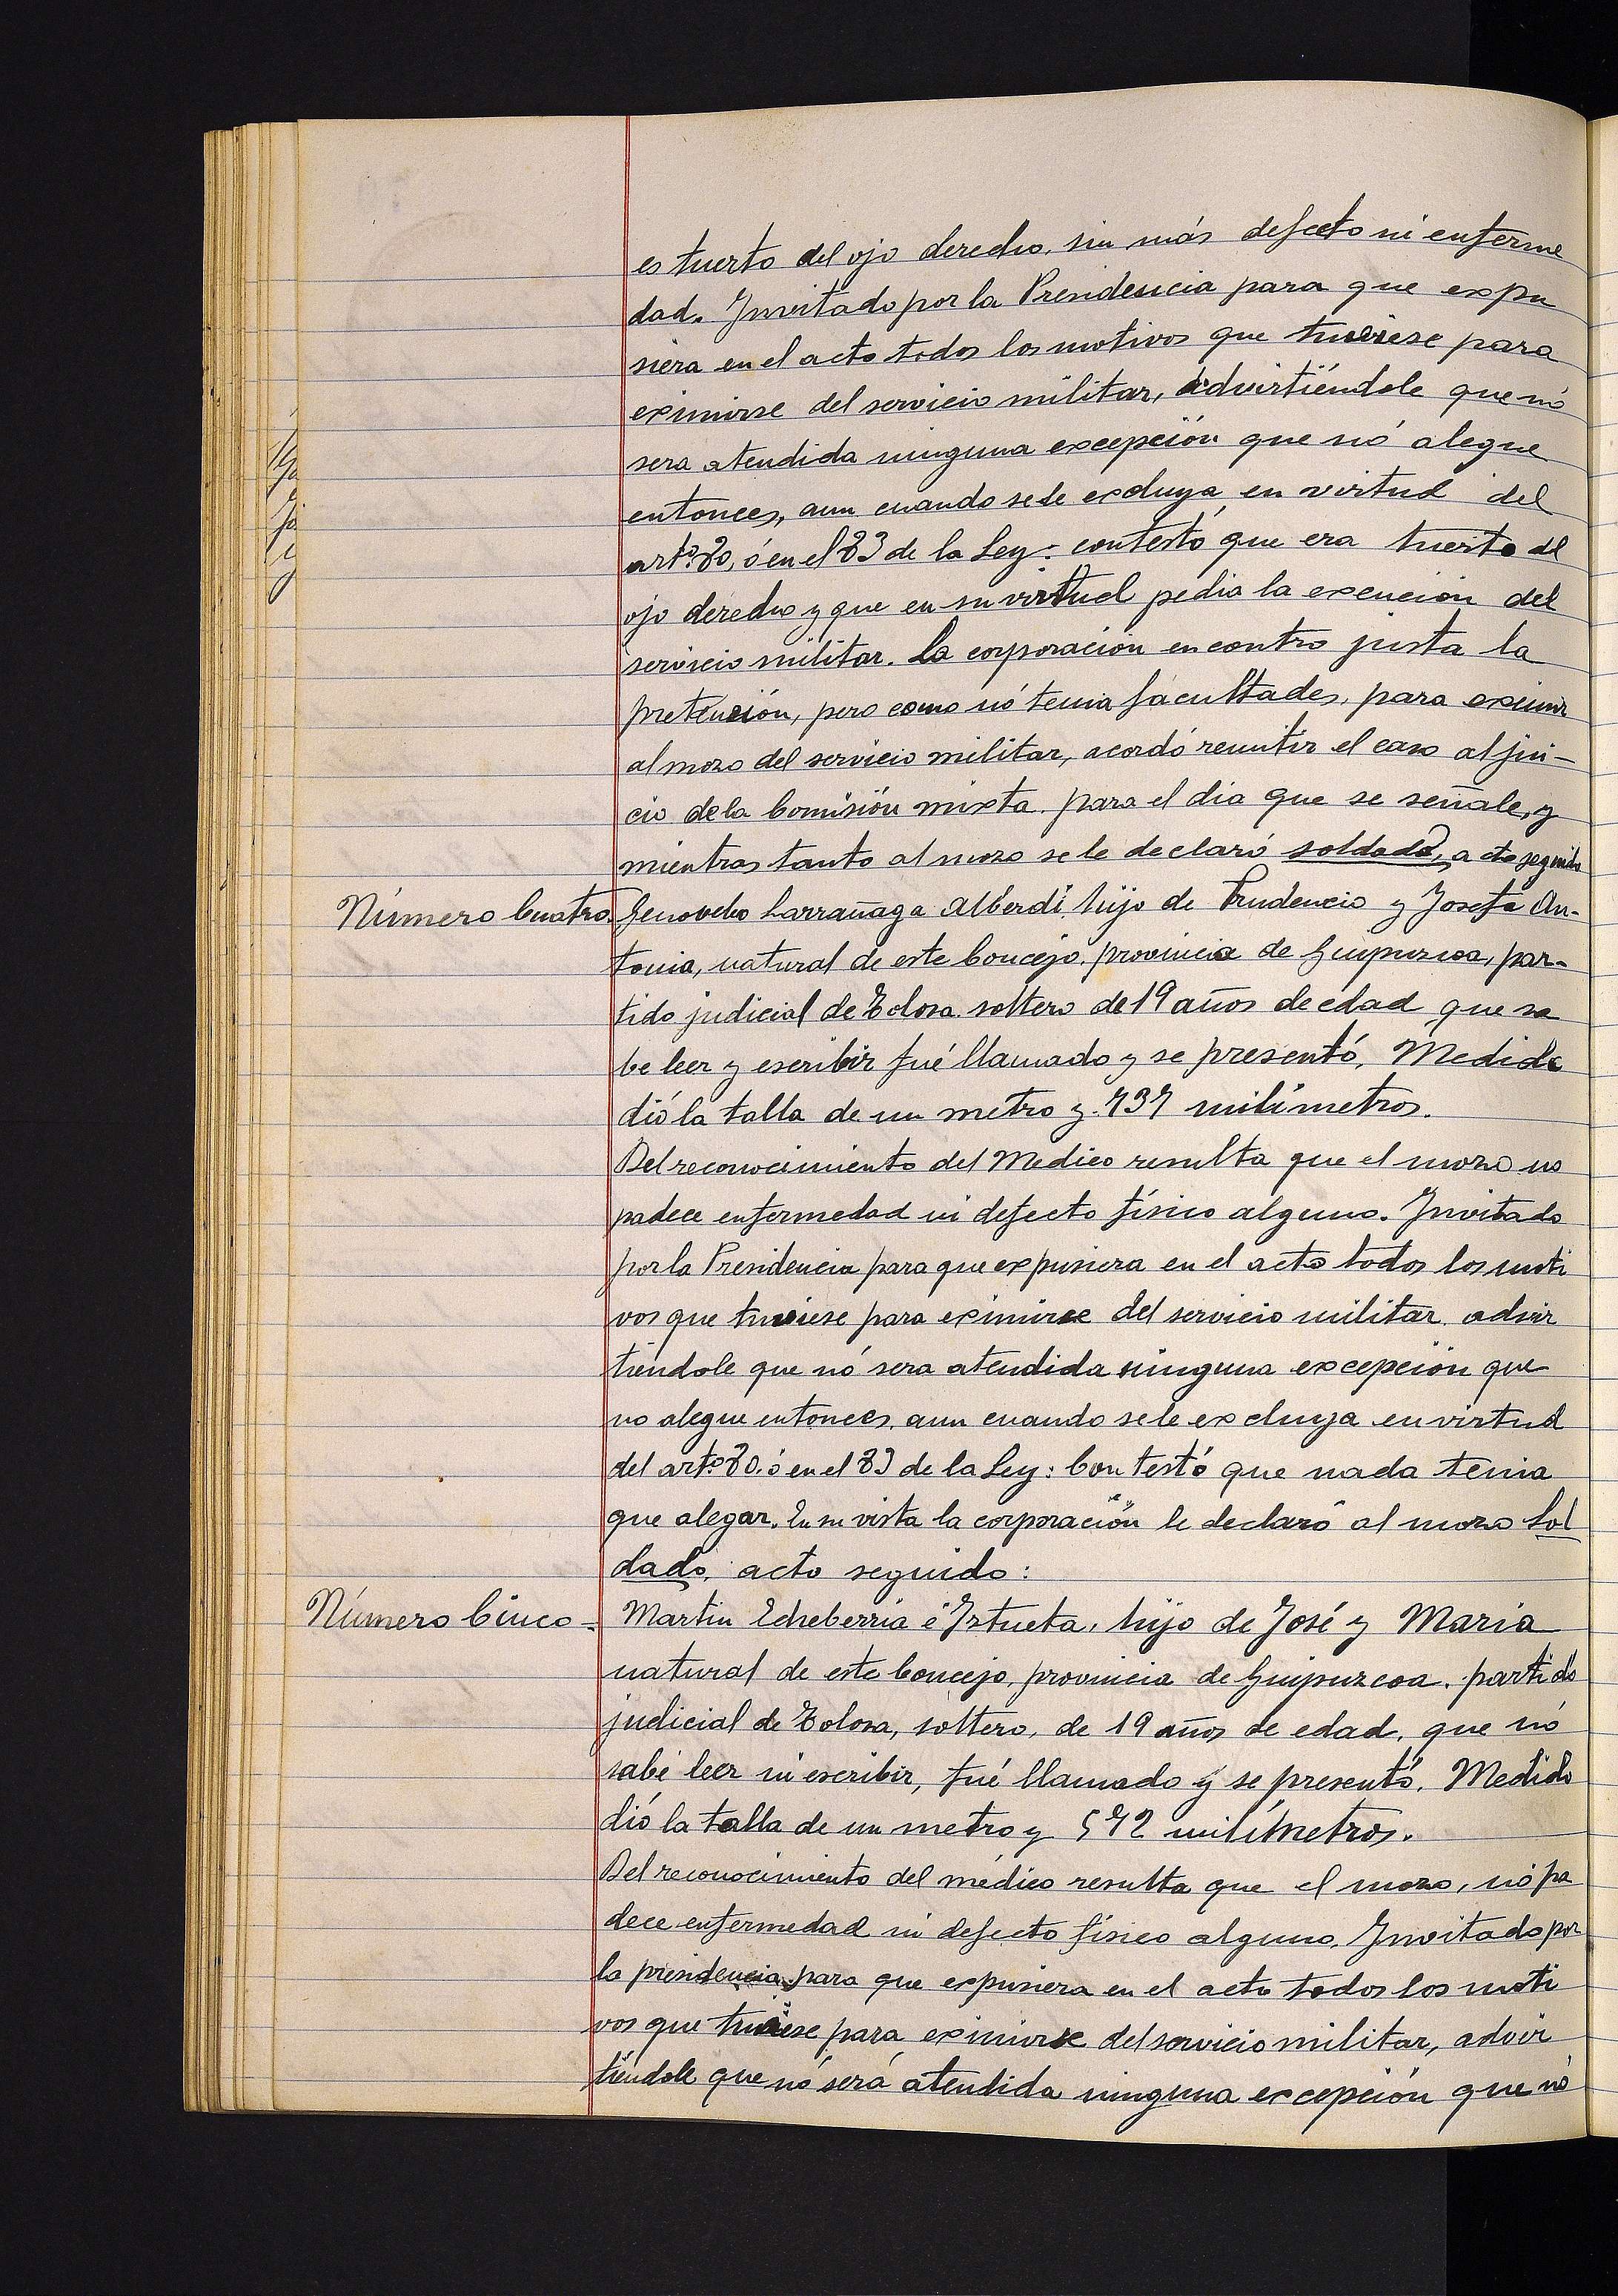 es tuerto del ojo derecho, sin más defecto ni enferme
dad. Invitado por la Presidencia para que expu
siera en el acto todos los motivos que tuviese para
eximirse del servicio militar, advirtiéndole que nó
sera atendida ninguna excepción que nó alegue
entonces, aun cuando se le excluya en virtud del
artº 80, ó en el 83 de la Ley: contestó que era tuerto del
ojo derecho y que en su virtud pedia la exención del
servicio militar. La corporación encontro justa la
pretensión, pero como nó tenia facultades, para eximir
al mozo del servicio militar, acordó remitir el caso al jui-
cio de la Comisión mixta para el dia que se señale, y
mientras tanto al mozo se le declaró soldado, acto seguido
Número Cuatro. Larrañaga Alberdi hijo de Prudencio y Josefa An-
tonia, natural de este Concejo, provincia de Guipuzcoa, par-
tido judicial de Tolosa soltero de 19 años de edad que sa
be leer y escribir fué llamado y se presentó. Medido
dió la talla de un metro y 737 milímetros.
Del reconocimiento del Medico resulta que el mozo no
padece enfermedad ni defecto físico alguno. Invitado
por la Presidencia para que expusiera en el acto todos los moti
vos que tuviese para eximirse del servicio militar advir
tiendole que nó sera atendida ninguna excepción que
no alegue entonces, aun cuando se le excluya en virtud
del artº 80. ó en el 83 de la Ley: Contestó que nada tenia
que alegar. En su vista la corporación le declaró al mozo Sol
dado, acto seguido:
Número Cinco = Martin Echeberria é Iztueta, hijo de José y Maria
natural de este Concejo, provincia de Guipuzcoa. partido
judicial de Tolosa, soltero, de 19 años de edad, que nó
sabe leer ni escribir, fué llamado y se presentó. Medido
dió la talla de un metro y 572 milímetros.
Del reconocimiento del médico resulta que el mozo, nó pa
dece enfermedad ni defecto físico alguno. Invitado por
la presidencia para que expusiera en el acto todos los moti
vos que tuviese para eximirse del servicio militar, advir
tiendole que nó será atendida ninguna excepción que nó